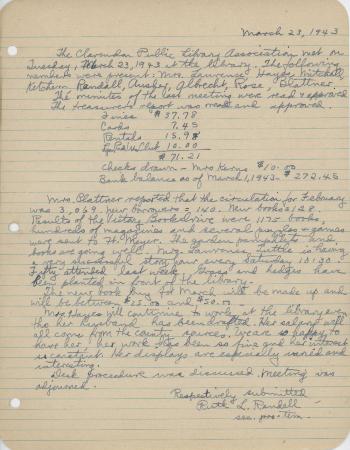 March 23, 1943
The Clarendon Public Library Association met on
Tuesday, March 23, 1943 at the library. The following
members were present: Mrs. Lawrence, Hayes, Mitchell,
Ketchem, Randall, Albrecht, Rose, Plattner.
The minutes of the last meeting were read & approved
The treasurer's report was read and approved.
Fines $37.78
Cards 7.45
Rentals 15.98
Club 10.00
$71.21
Checks drawn - Mrs Kerns $10.00
Bank balance as of March 1, 1943 - $272.45
Mrs. Plattner reported that the circulation for February
was 3,069. New borrowers - 140. New books 128
Results of the Victory Book drive were 1175 books,
hundreds of magazines and several puzzles & games
were sent to Ft. Meyer. The garden pamphlets and
books are going well. Mrs. Tuttle is having
a very successful story hour every Saturday 10:30 -
Fifty attended last week. Grass and hedges have
been planted in front of the library.
The new book order for March will be made up and
will be between $25.00 and $50.00
Mrs. Hayes will continue to work at the library even
tho her husband has been drafted. Her salary will
all come from the county sources. We are so happy to
have her, her work has been so fine and her interest
is constant. Her displays are especially varied and
interesting.
Desk procedure was discussed. Meeting was
adjourned.
Respectively submitted
Ruth L. Randall
sec. pro-tem.